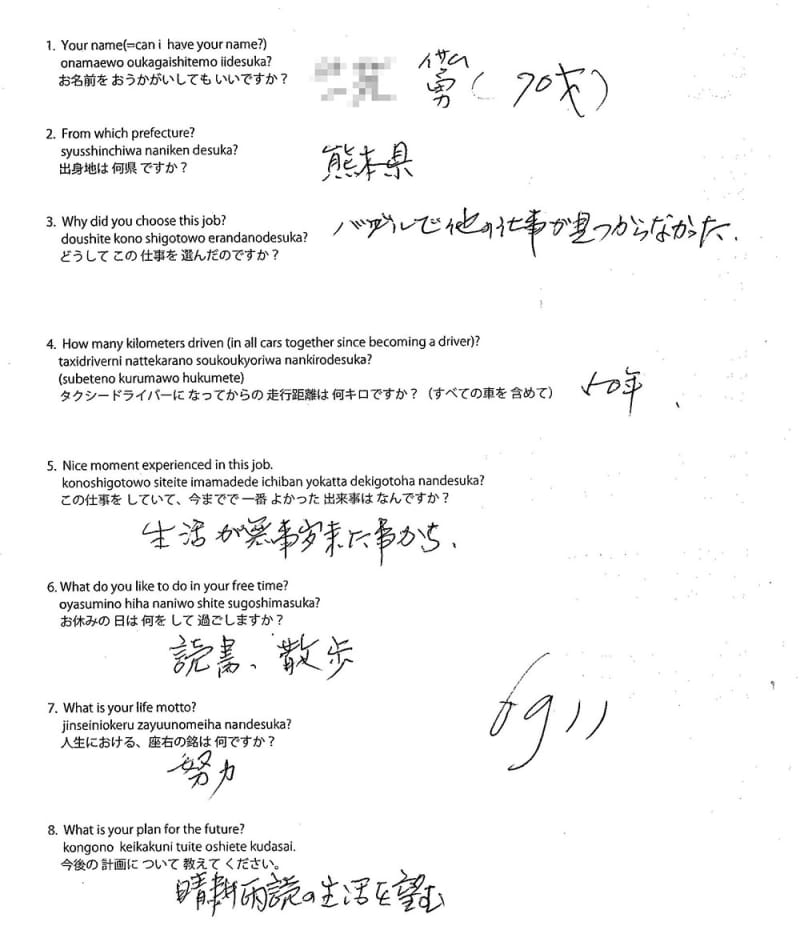 1. Your name(=can i have your name?)
onamaewo oukagaishitemo iidesuka?
お名前を おうかがいしても いいですか？
イサム
勇（70才）
2. From which prefecture?
syusshinchiwa naniken desuka?
出身地は 何県 ですか？
熊本県
3. Why did you choose this job?
doushite kono shigotowo erandanodesuka?
どうして この 仕事を 選んだのですか？
バブルで他の仕事が見つからなかった．
4. How many kilometers driven (in all cars together since becoming a driver)?
taxidriverni nattekarano soukoukyoriwa nankirodesuka?
(subeteno kurumawo hukumete)
タクシードライバーに なってからの 走行距離は 何キロですか？（すべての車を 含めて）
50年、
5. Nice moment experienced in this job.
konoshigotowo siteite imamadede ichiban yokatta dekigotoha nandesuka?
この仕事を していて、今までで 一番 よかった 出来事は なんですか？
生活が無事出来た事かも、
6. What do you like to do in your free time?
oyasumino hiha naniwo shite sugoshimasuka?
お休みの 日は 何を して 過ごしますか？
読書、散歩
7. What is your life motto?
jinseiniokeru zayuunomeiha nandesuka?
人生における、座右の銘は 何ですか？
努力
8. What is your plan for the future?
kongono keikakuni tuite oshiete kudasai.
今後の 計画に ついて 教えて ください。
晴耕雨読の生活を望む